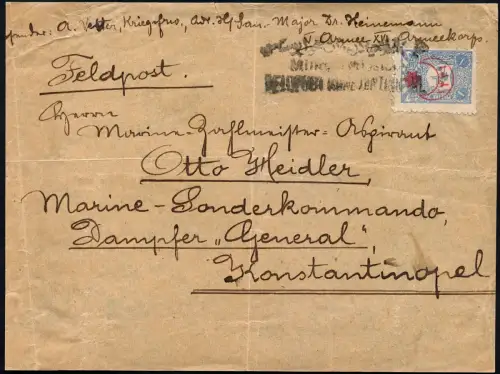 A. Vetter, Kriegsfrw., Adr. H/ San.-Major Dr. Heinemann
V. Armee XVI. Armeekorps.
Feldpost.
Herrn
Marine-Zahlmeister-Aspirant
Otto Heidler,
Marine-Sonderkommando,
Dampfer „General“,
Konstantinopel